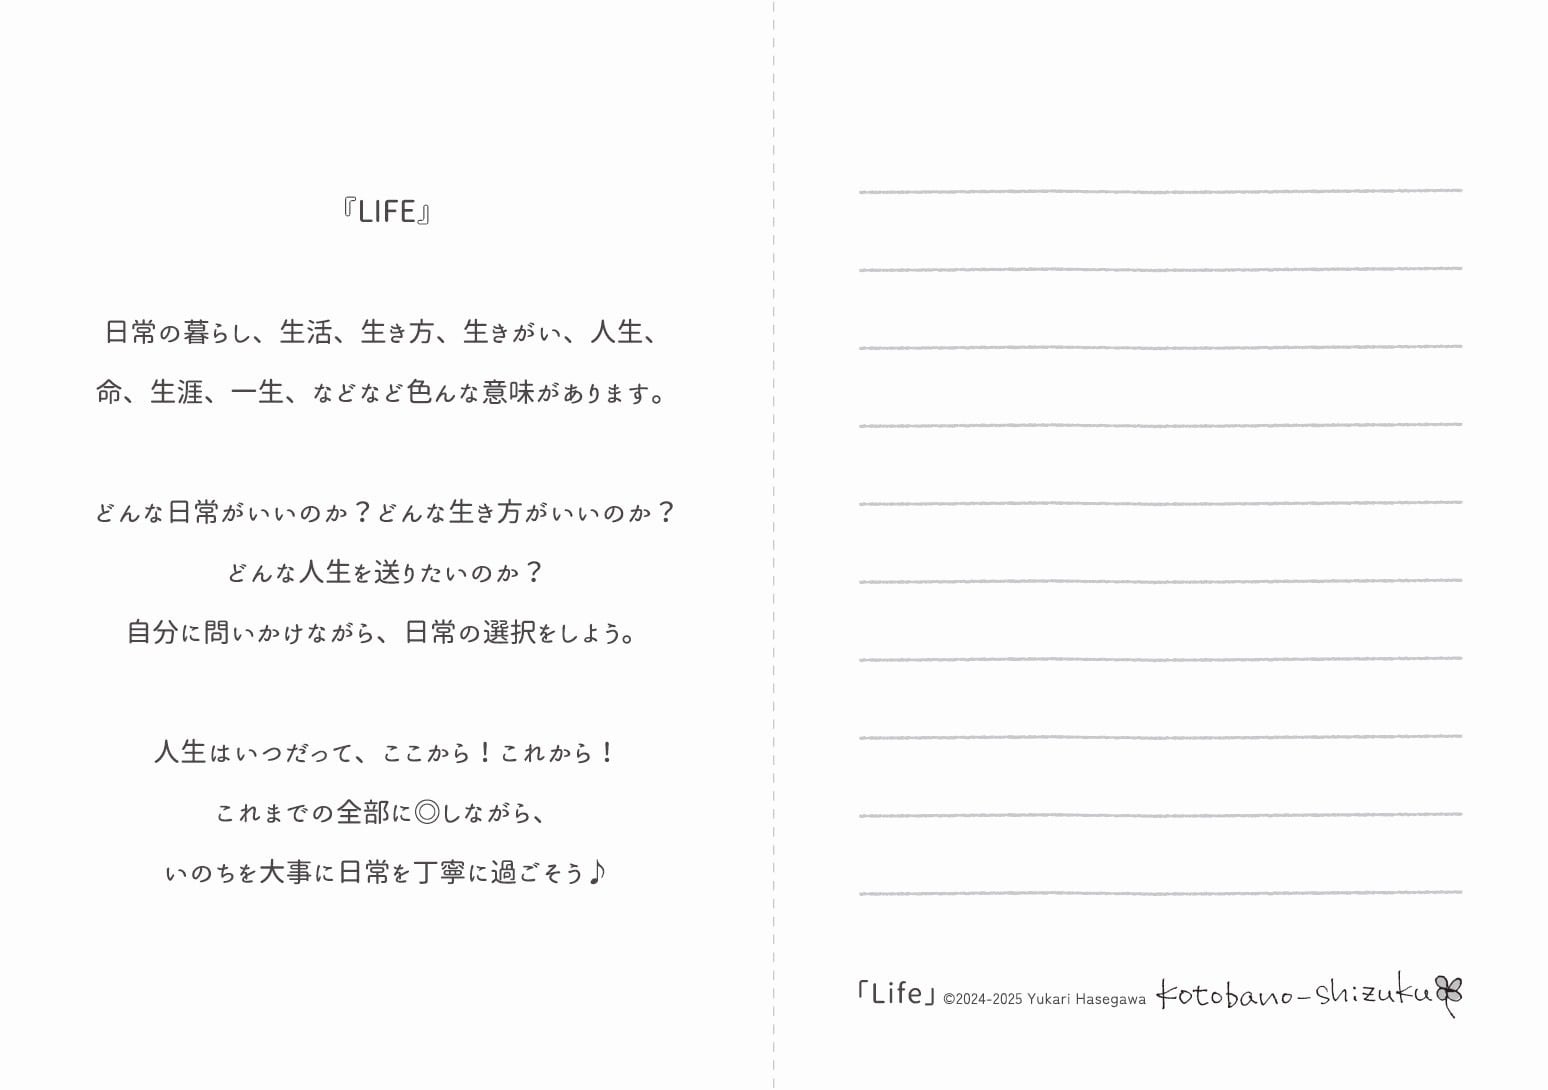 『LIFE』
日常の暮らし、生活、生き方、生きがい、人生、
命、生涯、一生、などなど色んな意味があります。
どんな日常がいいのか？どんな生き方がいいのか？
どんな人生を送りたいのか？
自分に問いかけながら、日常の選択をしよう。
人生はいつだって、ここから！これから！
これまでの全部に◎しながら、
いのちを大事に日常を丁寧に過ごそう♪
「Life」©2024-2025 Yukari Hasegawa kotobano-shizuku